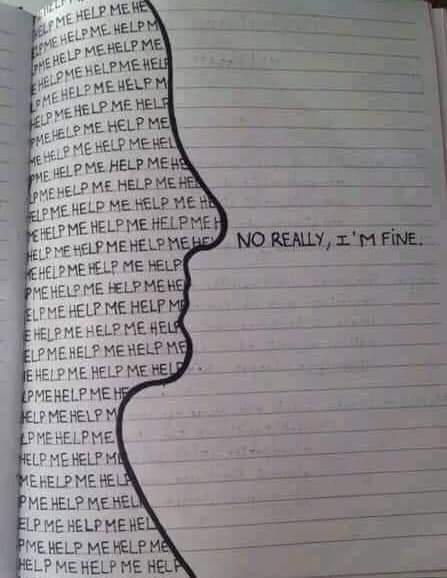 HELP ME
HELP ME HELP ME HE
LPME HELP ME HELP ME
PME HELP ME HELP ME
ME HELP ME HELP ME HELP
ELP ME HELP ME HELP M
LP ME HELP ME HELP ME
HELP ME HELP ME HELP
PME HELP ME HELP ME
ME HELP ME HELP ME HEL
PME HELP ME HELP ME HE
LPME HELP ME HELP ME HEL
ELP ME HELP ME HELP ME HE
ME HELP ME HELP ME HELP ME H
HELP ME HELP ME HELP ME HEL NO REALLY, I'M FINE.
E HELP ME HELP ME HELP
PME HELP ME HELP ME HE
ELP ME HELP ME HELP ME
E HELP ME HELP ME HELP
ELP ME HELP ME HELP ME
E HELP ME HELP ME HELP ME
LPME HELP ME HE
HELP ME HELP M
LP ME HELP ME
HELP ME HELP ME
ME HELP ME HELP
PME HELP ME HEL
ELP ME HELP ME HEL
PME HELP ME HELP ME
HELP ME HELP ME HELP